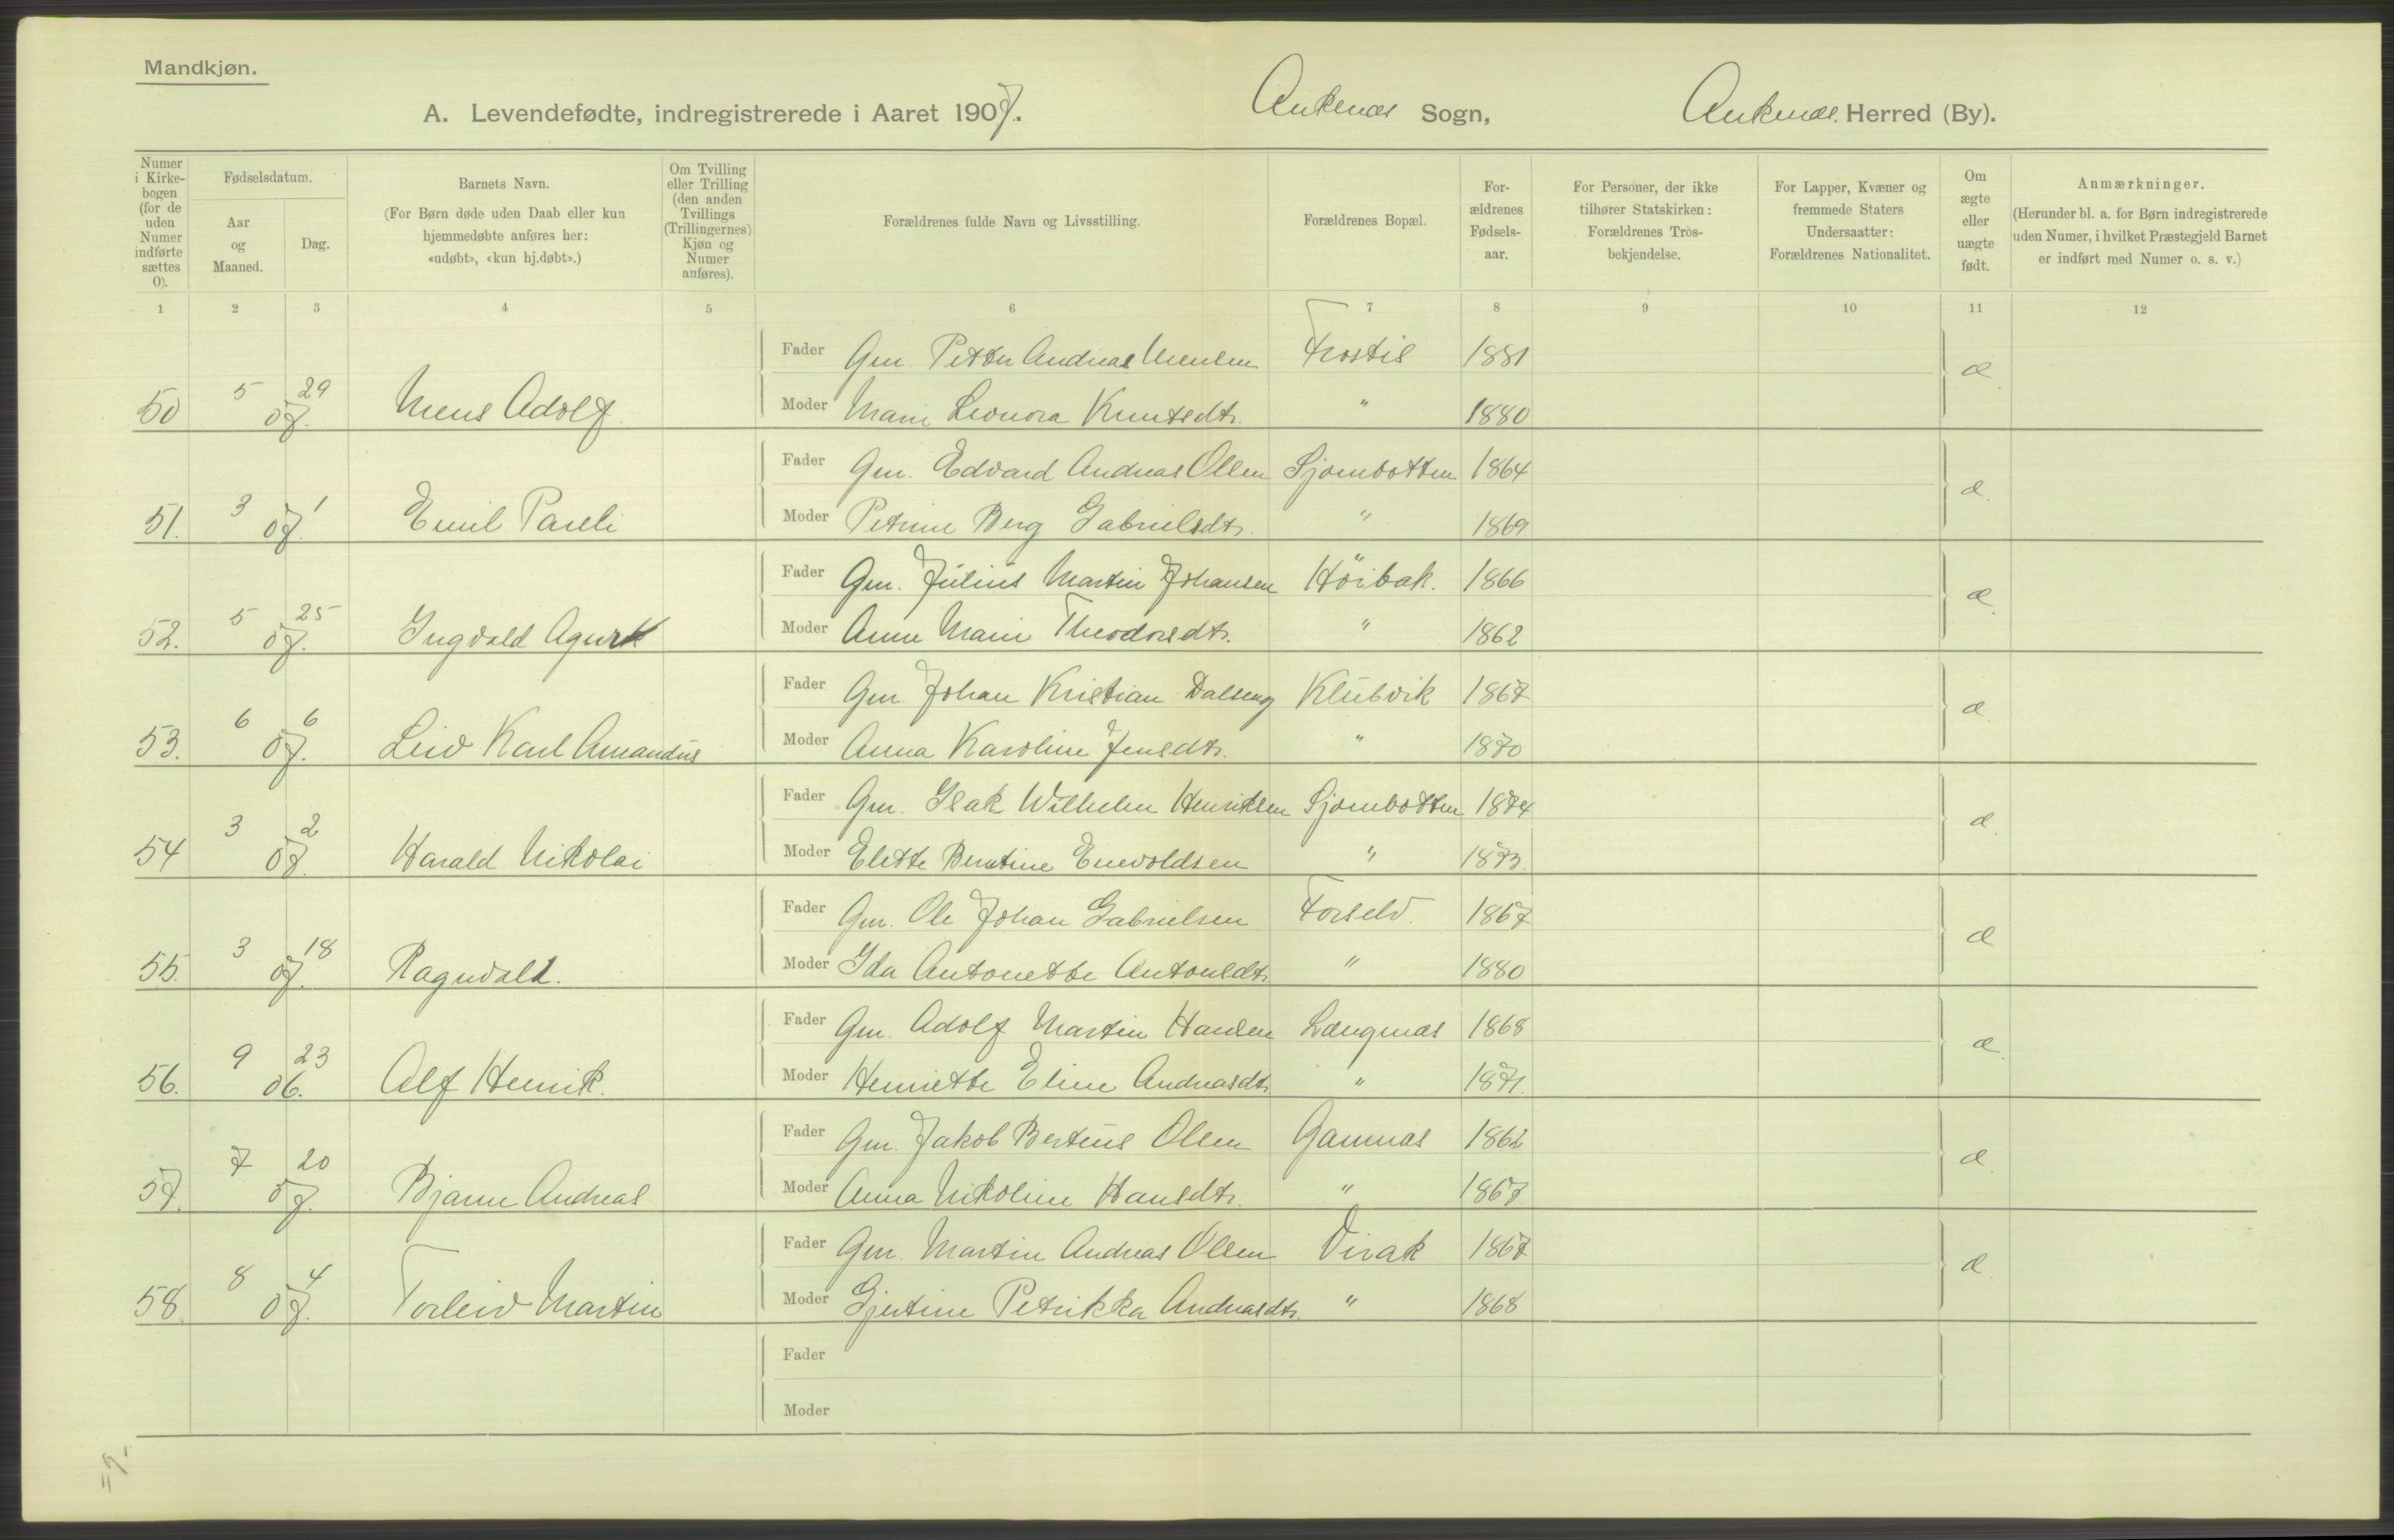 Mandkjøn.
A. Levendefødte, indregistrerede i Aaret 1907. Ankenæs Sogn, Ankenæs. Herred (By).
Numer i Kirkebogen (for de uden Numer indførte sættes 0).
Fødselsdatum.
Aar og Maaned.
Dag.
Barnets Navn.
(For Børn døde uden Daab eller kun hjemmedøbte anføres her: «udøbt», «kun hj.døbt».)
Om Tvilling eller Trilling (den anden Tvillings (Trillingernes) Kjøn og Numer anføres).
Forældrenes fulde Navn og Livsstilling.
Forældrenes Bopæl.
Forældrenes Fødselsaar.
For Personer, der ikke tilhører Statskirken: Forældrenes Trosbekjendelse.
For Lapper, Kvæner og fremmede Staters Undersaatter: Forældrenes Nationalitet.
Om ægte eller uægte født.
Anmærkninger.
(Herunder bl. a. for Børn indregistrerede uden Numer, i hvilket Præstegjeld Barnet er indført med Numer o. s. v.)
1 2 3 4 5 6 7 8 9 10 11 12
Fader Gm. Petter Andreas Mensen Frostis 1881 æ.
50 5 07. 29 Mens Adolf. Moder Marie Leonora Knutsdtr. " 1880
Fader Gm. Edvard Andreas Olsen Sjombotten 1864 æ.
51. 3 07. 1 Emil Pareli Moder Petrine Berg Gabrielsdtr. " 1869
Fader Gm. Julius Martin Johansen Höibak. 1866 æ.
52. 5 07. 25 Ingvald Agurk Moder Anne Marie Theodorsdtr. " 1862
Fader Gm. Johan Kristian Dalseng Klubvik 1867 æ
53. 6 07. 6 Leiv Karl Amandus Moder Anna Karoline Jensdtr. " 1870
Fader Gm. Isak Wilhelm Henriksen Sjombotten 1874 æ.
54 3 07. 2 Harald Nikolai Moder Elette Berntine Enevoldsen " 1873.
Fader Gm. Ole Johan Gabrielsen Forselv. 1867 æ
55. 3 07. 18 Ragnvald. Moder Ida Antonette Antonsdtr. " 1880
Fader Gm. Adolf Martin Hansen Længnæs 1868 æ.
56. 9 06. 23 Alf Henrik. Moder Henriette Eline Andreasdtr. " 1871.
Fader Gm. Jakob Berteus Olsen Gamnæs 1862 æ.
57. 7 07. 20 Bjarne Andreas Moder Anna Nikoline Hansdtr. " 1867
Fader Gm. Martin Andreas Olsen Virak 1867 æ.
58. 8 07. 4 Torleiv Martin Moder Gjertine Petrikka Andreasdtr. " 1868
Fader
Moder